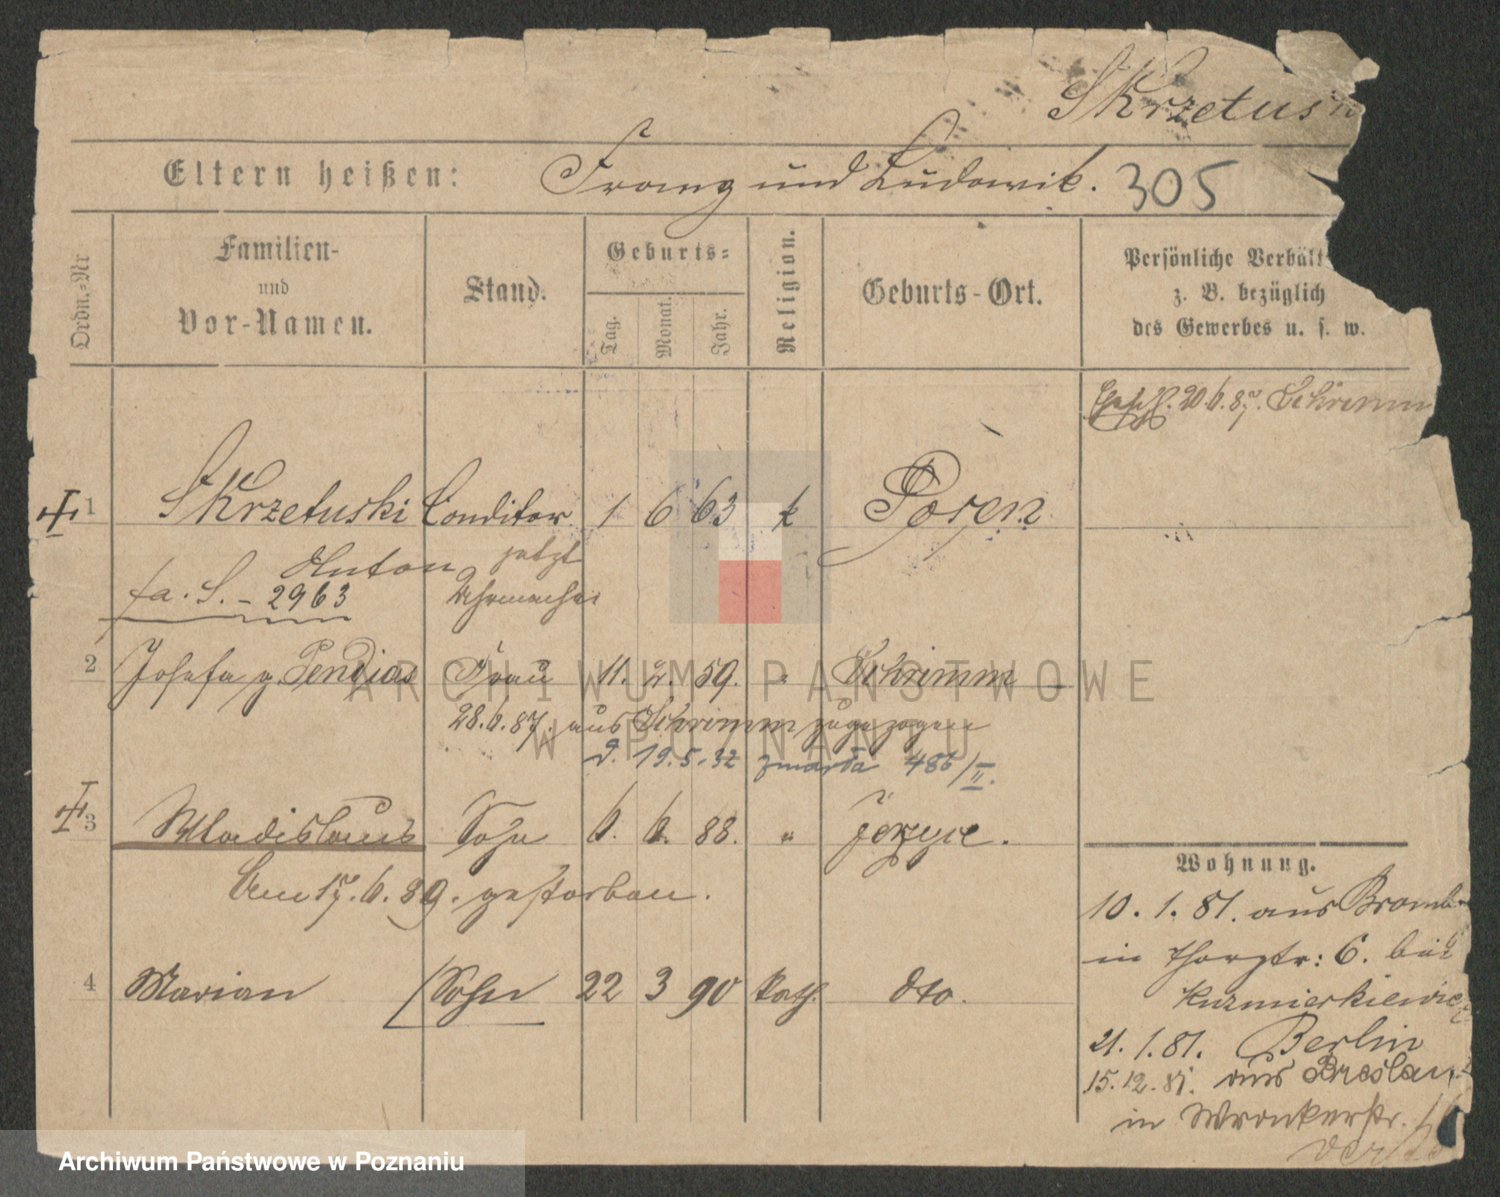 Skrzetus
Eltern heißen: Franz und Ludowik. 305
Ordn.-Nr
Familien-
und
Vor-Namen.
Stand.
Geburts-
Tag.
Monat.
Jahr.
Religion.
Geburts-Ort.
Persönliche Verhält
z. B. bezüglich
des Gewerbes u. s. w.
20.6.87. Schrimm
1 Skrzetuski Conditor 1 6 63 k Posen
Anton jetzt
fa. S. - 2963 Uhrmacher
2 Josefa g. Pendias Frau 11. 2. 59. " Schrimm
28.6.87. aus Schrimm zugezogen
d. 19.5.32 zmarła 486/II.
3 Wladislaus Sohn 6. 6. 88. " Jerzyce.
Am 17.6.89. gestorben.
4 Marian Sohn 22 3 90 kath. dto.
Wohnung.
10. 1. 81. aus Bromb
in Thorstr: 6. bei
Kuzmierkiewicz
21. 1. 81. Berlin
15. 12. 81. aus Breslau
in Wronkerstr.
ARCHIWUM PAŃSTWOWE
W POZNANIU
Archiwum Państwowe w Poznaniu